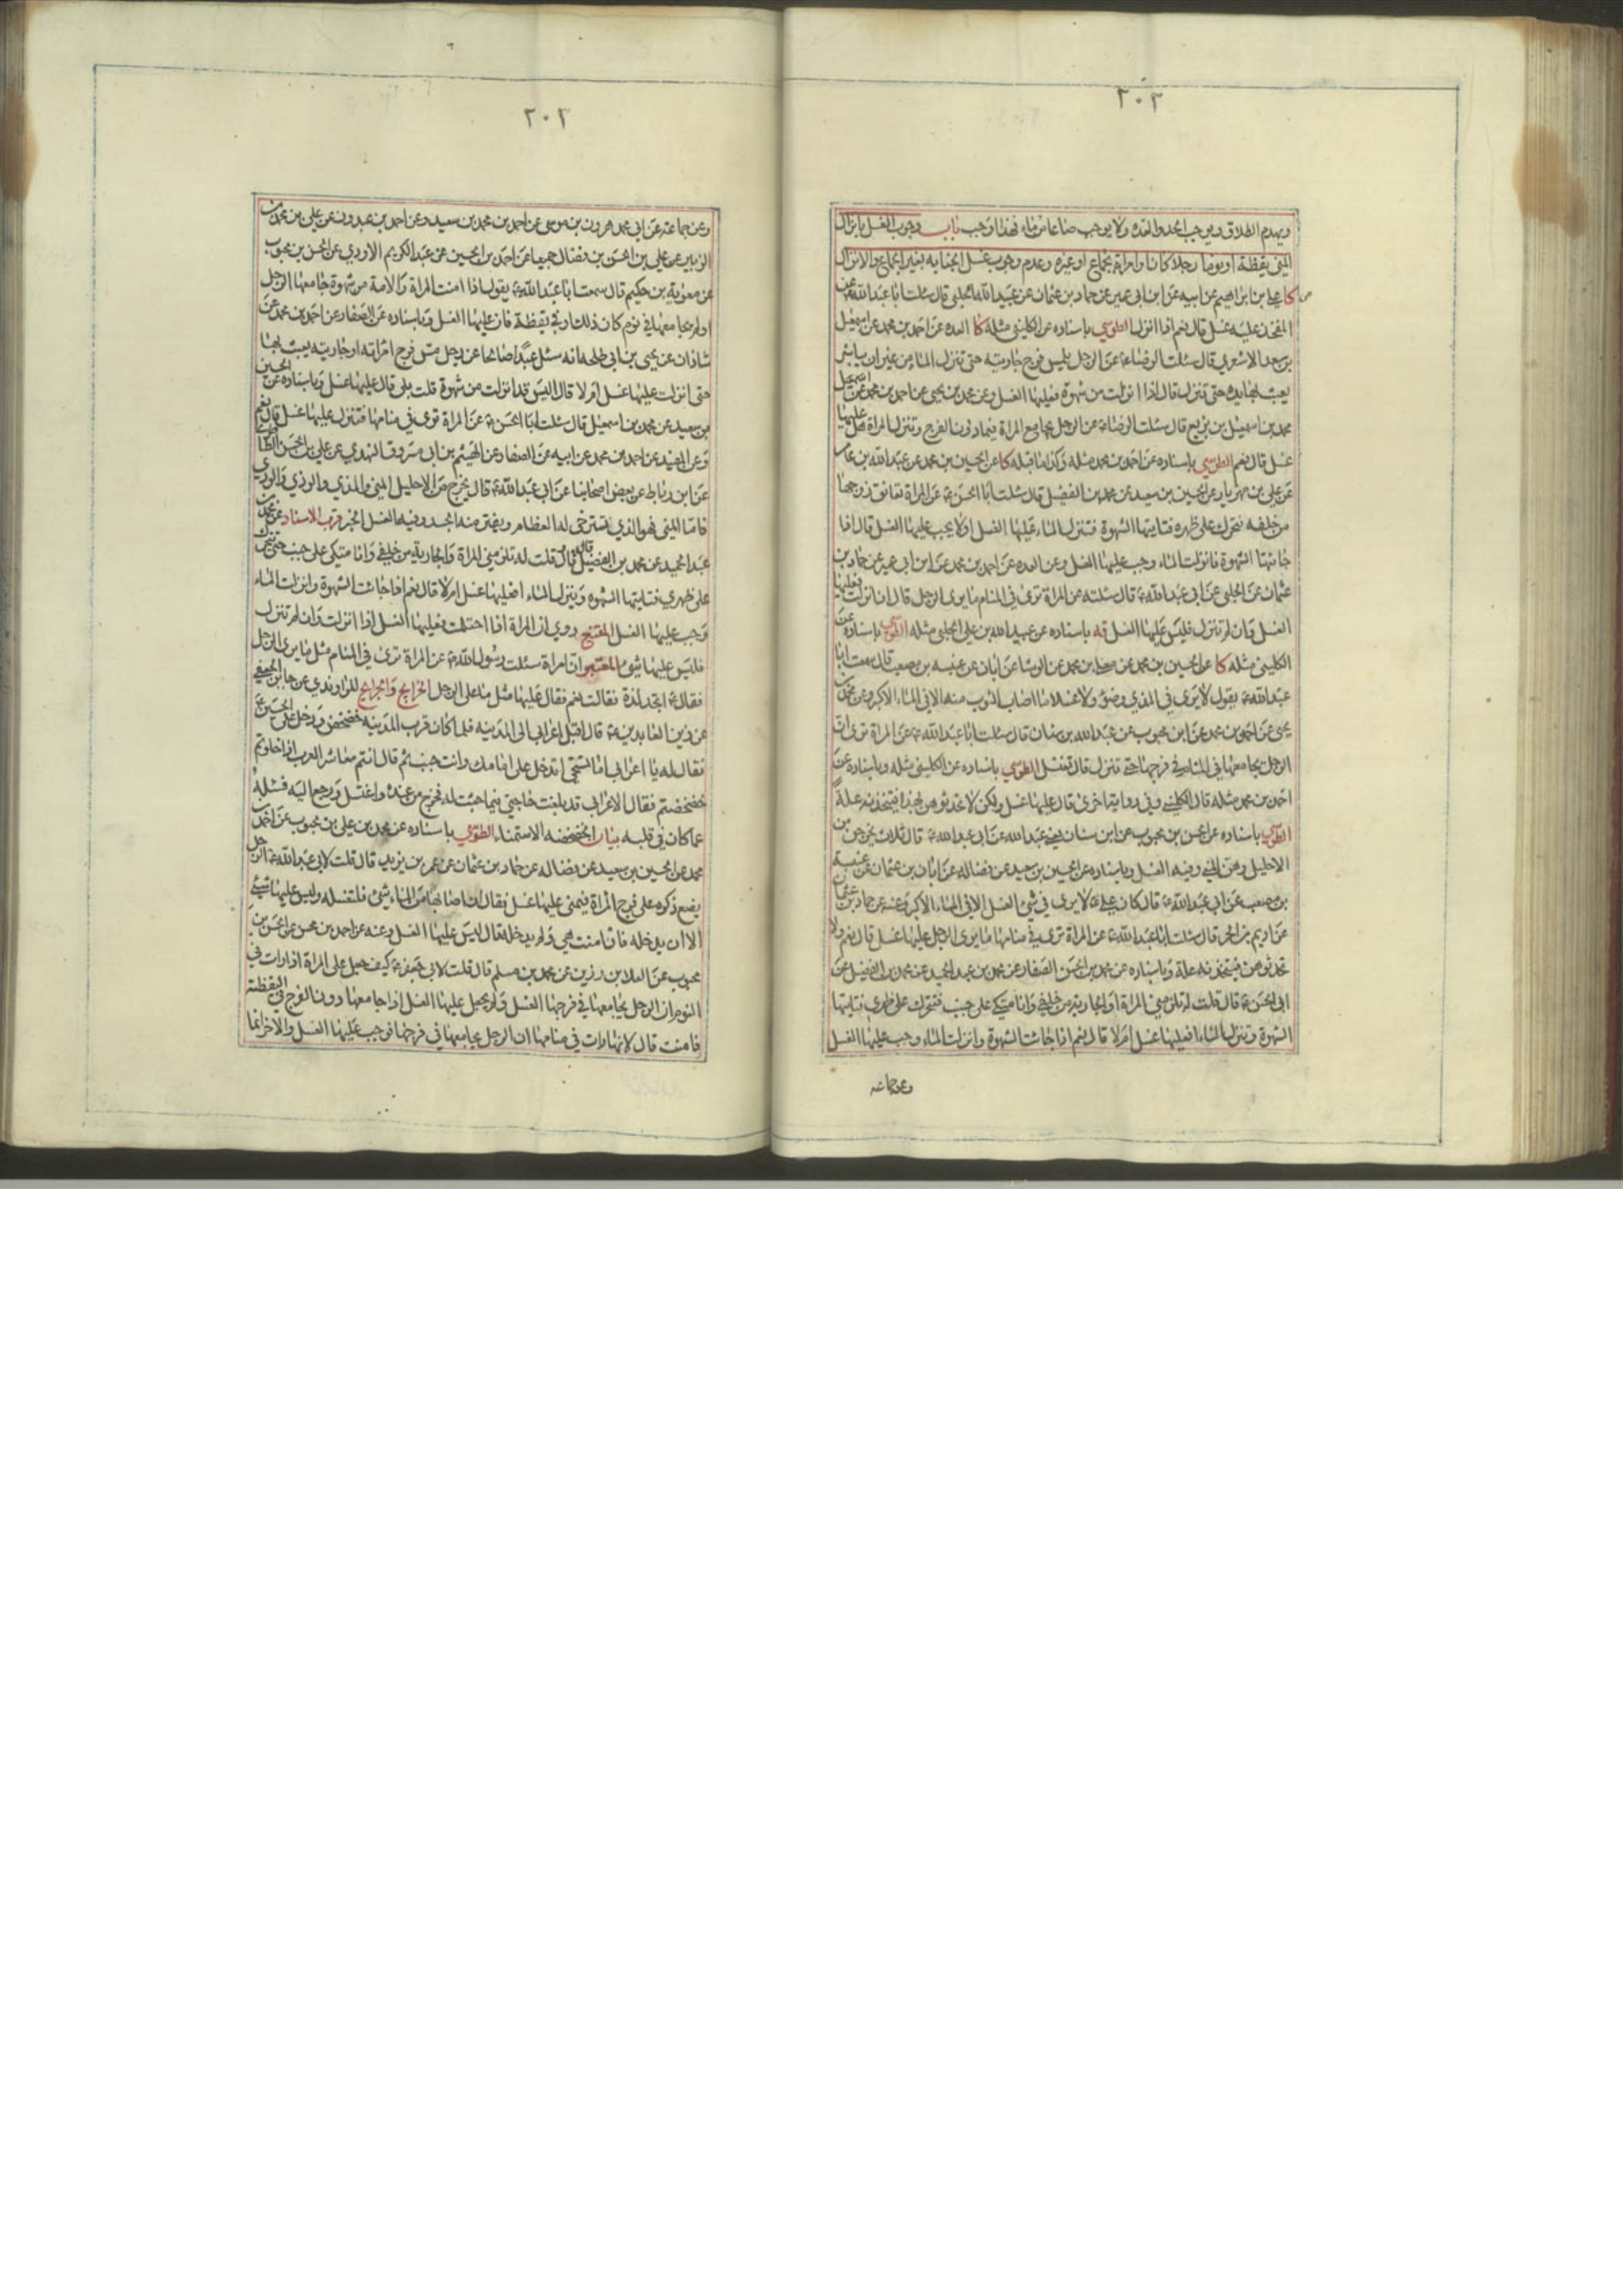 ٢٠٢
ويهدم الطلاق ويوجب الحد والعده ولا يوجب صاعا من ماء فهذا اوجب باب وجوب الغسل بانزال
المني يقظة او نوما رجلا كان او امراة بجماع او غيره وعدم وجوب غسل الجنابه بغير الجماع والانزال
كا علي بن ابراهيم عن ابيه عن ابن ابي عمير عن حماد بن عثمان عن عبيد الله الحلبي قال سئلت ابا عبد الله ع عن
المفخذ عليه غسل قال نعم اذا انزل الطوسي باسناده عن الكليني مثله كا العده عن احمد بن محمد عن اسمعيل
بن سعد الاشعري قال سئلت الرضا ع عن الرجل يلمس فرج جاريته حتى تنزل الماء من غير ان يباشر
يعبث بها بيده حتى تنزل قال اذا انزلت من شهوة فعليها الغسل وعن محمد بن يحيى عن احمد بن محمد عن اسمعيل
محمد بن اسمعيل بن بزيع قال سئلت الرضا ع عن الرجل يجامع المراة فيما دون الفرج وتنزل المراة هل عليها
غسل قال نعم الطوسي باسناده عن احمد بن محمد مثله وكذا ما قبله كا عن الحسين بن محمد عن عبد الله بن عامر
عن علي بن مهزيار عن الحسين بن سعيد عن محمد بن الفضيل قال سئلت ابا الحسن ع عن المراة تعانق زوجها
من خلفه فتحرك على ظهره فتاتيها الشهوة فتنزل الماء عليها الغسل او لا يجب عليها الغسل قال اذا
جائتها الشهوة فانزلت الماء وجب عليها الغسل وعن العده عن احمد بن محمد عن ابن ابي عمير عن حماد بن
عثمان عن الحلبي عن ابي عبد الله ع قال سئلته عن المراة ترى في المنام ما يرى الرجل قال ان انزلت فعليها
الغسل وان لم تنزل فليس عليها الغسل قه باسناده عن عبيد الله بن علي الحلبي مثله الطوسي باسناده عن
الكليني مثله كا عن الحسين بن محمد عن معلى بن محمد عن الوشا عن ابان عن عنبسه بن مصعب قال سمعت ابا
عبد الله ع يقول لا يرى في المذي وضوء ولا غسلا ما اصاب الثوب منه الا في الماء الاكبر وعن محمد بن
يحيى عن احمد بن محمد عن ابن محبوب عن عبد الله بن سنان قال سئلت ابا عبد الله ع عن المراة ترى ان
الرجل يجامعها في المنام في فرجها حتى تنزل قال تغتسل الطوسي باسناده عن الكليني مثله وباسناده عن
احمد بن محمد مثله قال الكليني وفي رواية اخرى قال عليها غسل ولكن لا تحدثوهن بهذا فيتخذنه علة
الطوسي باسناده عن الحسن بن محبوب عن ابن سنان يعني عبد الله عن ابي عبد الله ع قال ثلاث يخرجن من
الاحليل وهن المني وفيه الغسل وباسناده عن الحسين بن سعيد عن فضاله عن ابان بن عثمان عن عنبسة
بن مصعب عن ابي عبد الله ع قال كان علي ع لا يرى في شيء الغسل الا في الماء الاكبر وعنه عن حماد بن عثمان
عن اديم بن الحر قال سئلت ابا عبد الله ع عن المراة ترى في منامها ما يرى الرجل عليها غسل قال نعم ولا
تحدثوهن فيتخذنه علة وباسناده عن محمد بن الحسن الصفار عن محمد بن عبد الحميد عن محمد بن الفضيل عن
ابي الحسن ع قال قلت له تلزمني المراة او الجارية من خلفي وانا متكئ على جنب فتتحرك على ظهري فتاتيها
الشهوة وتنزل الماء افعليها غسل ام لا قال نعم اذا جائت الشهوة وانزلت الماء وجب عليها الغسل
وعن جماعه
٢٠٢
وعن جماعته عن ابي محمد هرون بن موسى عن احمد بن محمد بن سعيد وعن احمد بن عبدون عن علي بن محمد بن
الزبير عن علي بن الحسن بن فضال جميعا عن احمد بن الحسين عن عبد الكريم الاودي عن الحسن بن محبوب
عن معوية بن حكيم قال سمعت ابا عبد الله ع يقول اذا امنت المراة والامة من شهوة جامعها الرجل
او لم يجامعها في نوم كان ذلك او في يقظة فان عليها الغسل وباسناده عن الصفار عن احمد بن محمد عن
شاذان عن يحيى بن ابي طلحه انه سئل عبدا صالحا عن رجل مس فرج امراته او جاريته يعبث بها
حتى انزلت عليها غسل ام لا قال اليس قد انزلت من شهوة قلت بلى قال عليها غسل وباسناده عن الحسين
بن سعيد عن محمد بن اسمعيل قال سئلت ابا الحسن ع عن المراة ترى في منامها فتنزل عليها غسل قال نعم
وعن المفيد عن احمد بن محمد عن ابيه عن الصفار عن الهيثم بن ابي مسروق النهدي عن علي بن الحسن الطاطري
عن ابن رباط عن بعض اصحابنا عن ابي عبد الله ع قال يخرج من الاحليل المني والمذي والوذي والودي
فاما المني فهو الذي تسترخي له العظام ويفتر منه الجسد وفيه الغسل الخبر قرب الاسناد عن محمد بن
عبد الحميد عن محمد بن الفضيل قال قلت له تلزمني المراة والجارية من خلفي وانا متكي على جنب حتى تتحرك
على ظهري فتاتيها الشهوه وينزل الماء افعليها غسل ام لا قال نعم اذا جائت الشهوة وانزلت الماء
وجب عليها الغسل المقنع روي ان المراة اذا احتلمت فعليها الغسل اذا انزلت وان لم تنزل
فليس عليها شيء المعتبر ان امراة سئلت رسول الله ص عن المراة ترى في المنام مثل ما يرى الرجل
فقال ع اتجد لذة فقالت نعم فقال عليها مثل ما على الرجل الخرايج والجرايح للراوندي عن جابر الجعفي
عن زين العابدين ع قال اقبل اعرابي الى المدينه فلما كان قرب المدينه خضخض ودخل على الحسين ع
فقال له يا اعرابي اما تستحيي اتدخل على امامك وانت جنب ثم قال انتم معاشر العرب اذا خلوتم
خضخضتم فقال الاعرابي قد بلغت حاجتي فيما جئت له فخرج من عنده واغتسل ورجع اليه فسئله
عما كان في قلبه بيان الخضخضه الاستمناء الطوسي باسناده عن محمد بن علي بن محبوب عن احمد بن
محمد عن الحسين بن سعيد عن فضاله عن حماد بن عثمان عن عمر بن يزيد قال قلت لابي عبد الله ع الرجل
يضع ذكره على فرج المراة فيمني عليها غسل فقال ان اصابها من الماء شيء فلتغسله وليس عليها شيء
الا ان يدخله فان امنت هي ولم يدخله قال ليس عليها الغسل وعنه عن احمد بن محمد عن الحسن بن
محبوب عن العلا بن رزين عن محمد بن مسلم قال قلت لابي جعفر ع كيف جعل على المراة اذا رات في
النوم ان الرجل يجامعها في فرجها الغسل ولم يجعل عليها الغسل اذا جامعها دون الفرج في اليقظة
فامنت قال لانها رات في منامها ان الرجل يجامعها في فرجها فوجب عليها الغسل والاخر انما